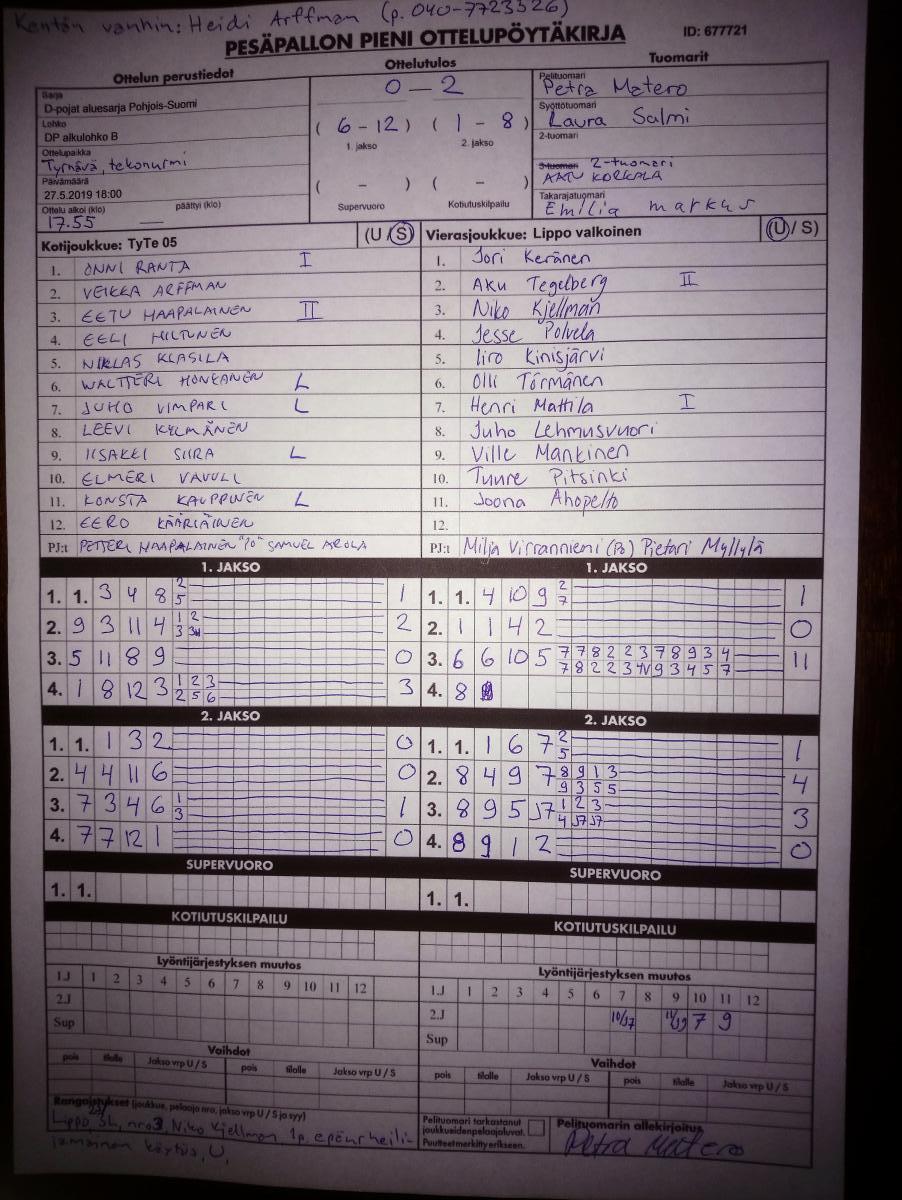 Kentän vanhin: Heidi Arffman (p. 040-7723526)
PESÄPALLON PIENI OTTELUPÖYTÄKIRJA ID: 677721
Ottelun perustiedot Ottelutulos Tuomarit
Sarja
D-pojat aluesarja Pohjois-Suomi
Lohko
DP alkulohko B
Ottelupaikka
Tyrnävä, tekonurmi
Päivämäärä
27.5.2019 18:00
Ottelu alkoi (klo) päättyi (klo)
17.55
0 – 2
( 6 - 12 ) ( 1 - 8 )
1. jakso 2. jakso
( - ) ( - )
Supervuoro Kotiutuskilpailu
Pelituomari
Petra Matero
Syöttötuomari
Laura Salmi
2-tuomari
3-tuomari 2-tuomari
AATU KORKALA
Takarajatuomari
Emilia markus
Kotijoukkue: TyTe 05 (U / S)
1. ONNI RANTA I
2. VEIKKA ARFFMAN
3. EETU HAAPALAINEN II
4. EELI HILTUNEN
5. NIKLAS KLASILA
6. WALTTERI HONKANEN L
7. JUHO VIMPARI L
8. LEEVI KYLMÄNEN
9. IISAKKI SIIRA L
10. ELMERI VAVULI
11. KONSTA KAUPPINEN L
12. EERO KÄÄRIÄINEN
PJ:t PETTERI HAAPALAINEN "PO" SAMUEL AROLA
Vierasjoukkue: Lippo valkoinen (U / S)
1. Jori Keränen
2. Aku Tegelberg II
3. Niko Kjellman
4. Jesse Polvela
5. Iiro Kinisjärvi
6. Olli Törmänen
7. Henri Mattila I
8. Juho Lehmusvuori
9. Ville Mankinen
10. Tuure Pitsinki
11. Joona Ahopelto
12.
PJ:t Milja Virranniemi (Po) Pietari Myllylä
1. JAKSO
1. 1. 3 4 8 2 1
5
2. 9 3 11 4 1 2 2
3
3. 5 11 8 9 0
4. 1 8 12 3 1 2 3 3
2 5 6
1. JAKSO
1. 1. 4 10 9 2 1
7
2. 1 1 4 2 0
3. 6 6 10 5 7 7 8 2 2 3 7 8 9 3 4 11
7 8 2 2 3 9 3 4 5 7
4. 8
2. JAKSO
1. 1. 1 3 2 0
2. 4 4 11 6 0
3. 7 3 4 6 1 1
3
4. 7 7 12 1 0
2. JAKSO
1. 1. 1 6 7 2 1
5
2. 8 4 9 7 8 9 1 3 4
9 3 5 5
3. 8 9 5 J7 1 2 3 3
4 J7 J7
4. 8 9 1 2 0
SUPERVUORO
1. 1.
SUPERVUORO
1. 1.
KOTIUTUSKILPAILU
KOTIUTUSKILPAILU
Lyöntijärjestyksen muutos
1.J 1 2 3 4 5 6 7 8 9 10 11 12
2.J
Sup
Lyöntijärjestyksen muutos
1.J 1 2 3 4 5 6 7 8 9 10 11 12
2.J 10/J7 11/J9 7 9
Sup
Vaihdot
pois tilalle Jakso vrp U / S pois tilalle Jakso vrp U / S
Vaihdot
pois tilalle Jakso vrp U / S pois tilalle Jakso vrp U / S
Rangaistukset (joukkue, pelaaja nro, jakso vrp U / S ja syy)
Lippo, nro 3, Niko Kjellman 1p, epäurheili-
jamainen käytös, U,
Pelituomari tarkastanut
joukkueiden pelaajaluvat.
Puutteet merkitty erikseen.
Pelituomarin allekirjoitus
Petra Matero